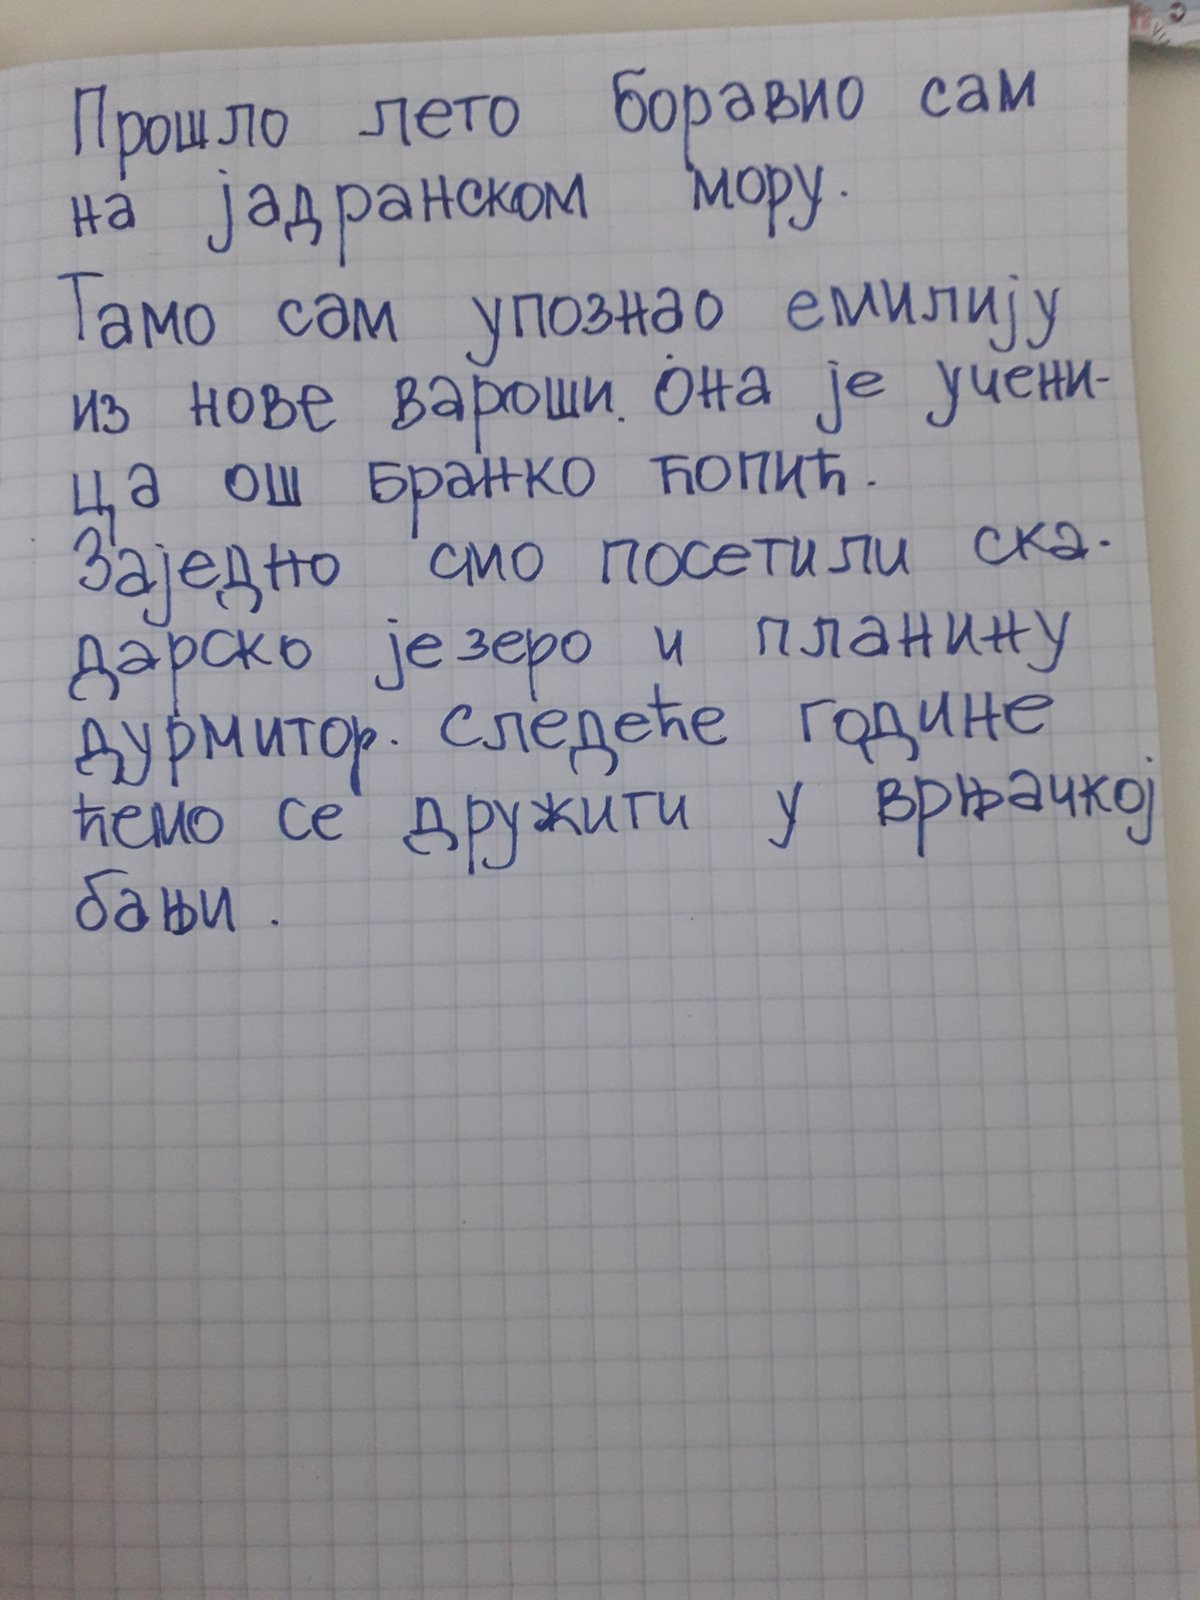 Прошло лето боравио сам
на јадранском мору.
Тамо сам упознао емилију
из нове вароши. она је учени-
ца ош бранко ћопић.
Заједно смо посетили ска-
дарско језеро и планину
дурмитор. следеће године
ћемо се дружити у врњачкој
бањи.